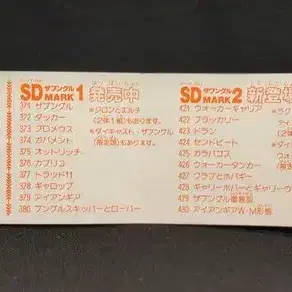 SD ザブングル MARK 1 発売中
371 ザブングル
372 ダッカー
373 プロメウス
374 ガバメント
375 オットリッチ
376 カプリコ
377 トラッド11
378 ギャロップ
379 アイアンギア
380 ブングルスキッパーとローバー
※ジロンとエルチ
(2体1組)もあります。
※ダイキャスト・ザブングル
(限定版)もあります。
SD ザブングル MARK 2 新登場
421 ウォーカーキャリア
422 ブラッカリー
423 ドラン
424 センドビート
425 ガラバゴス
426 ウォーカータンカー
427 クラブとホバギー
428 ギャリィホバーとギャリィウ
429 ザブングル重装型
430 アイアンギアW・M形態
※ラグ
(2
※ダイ
(限定